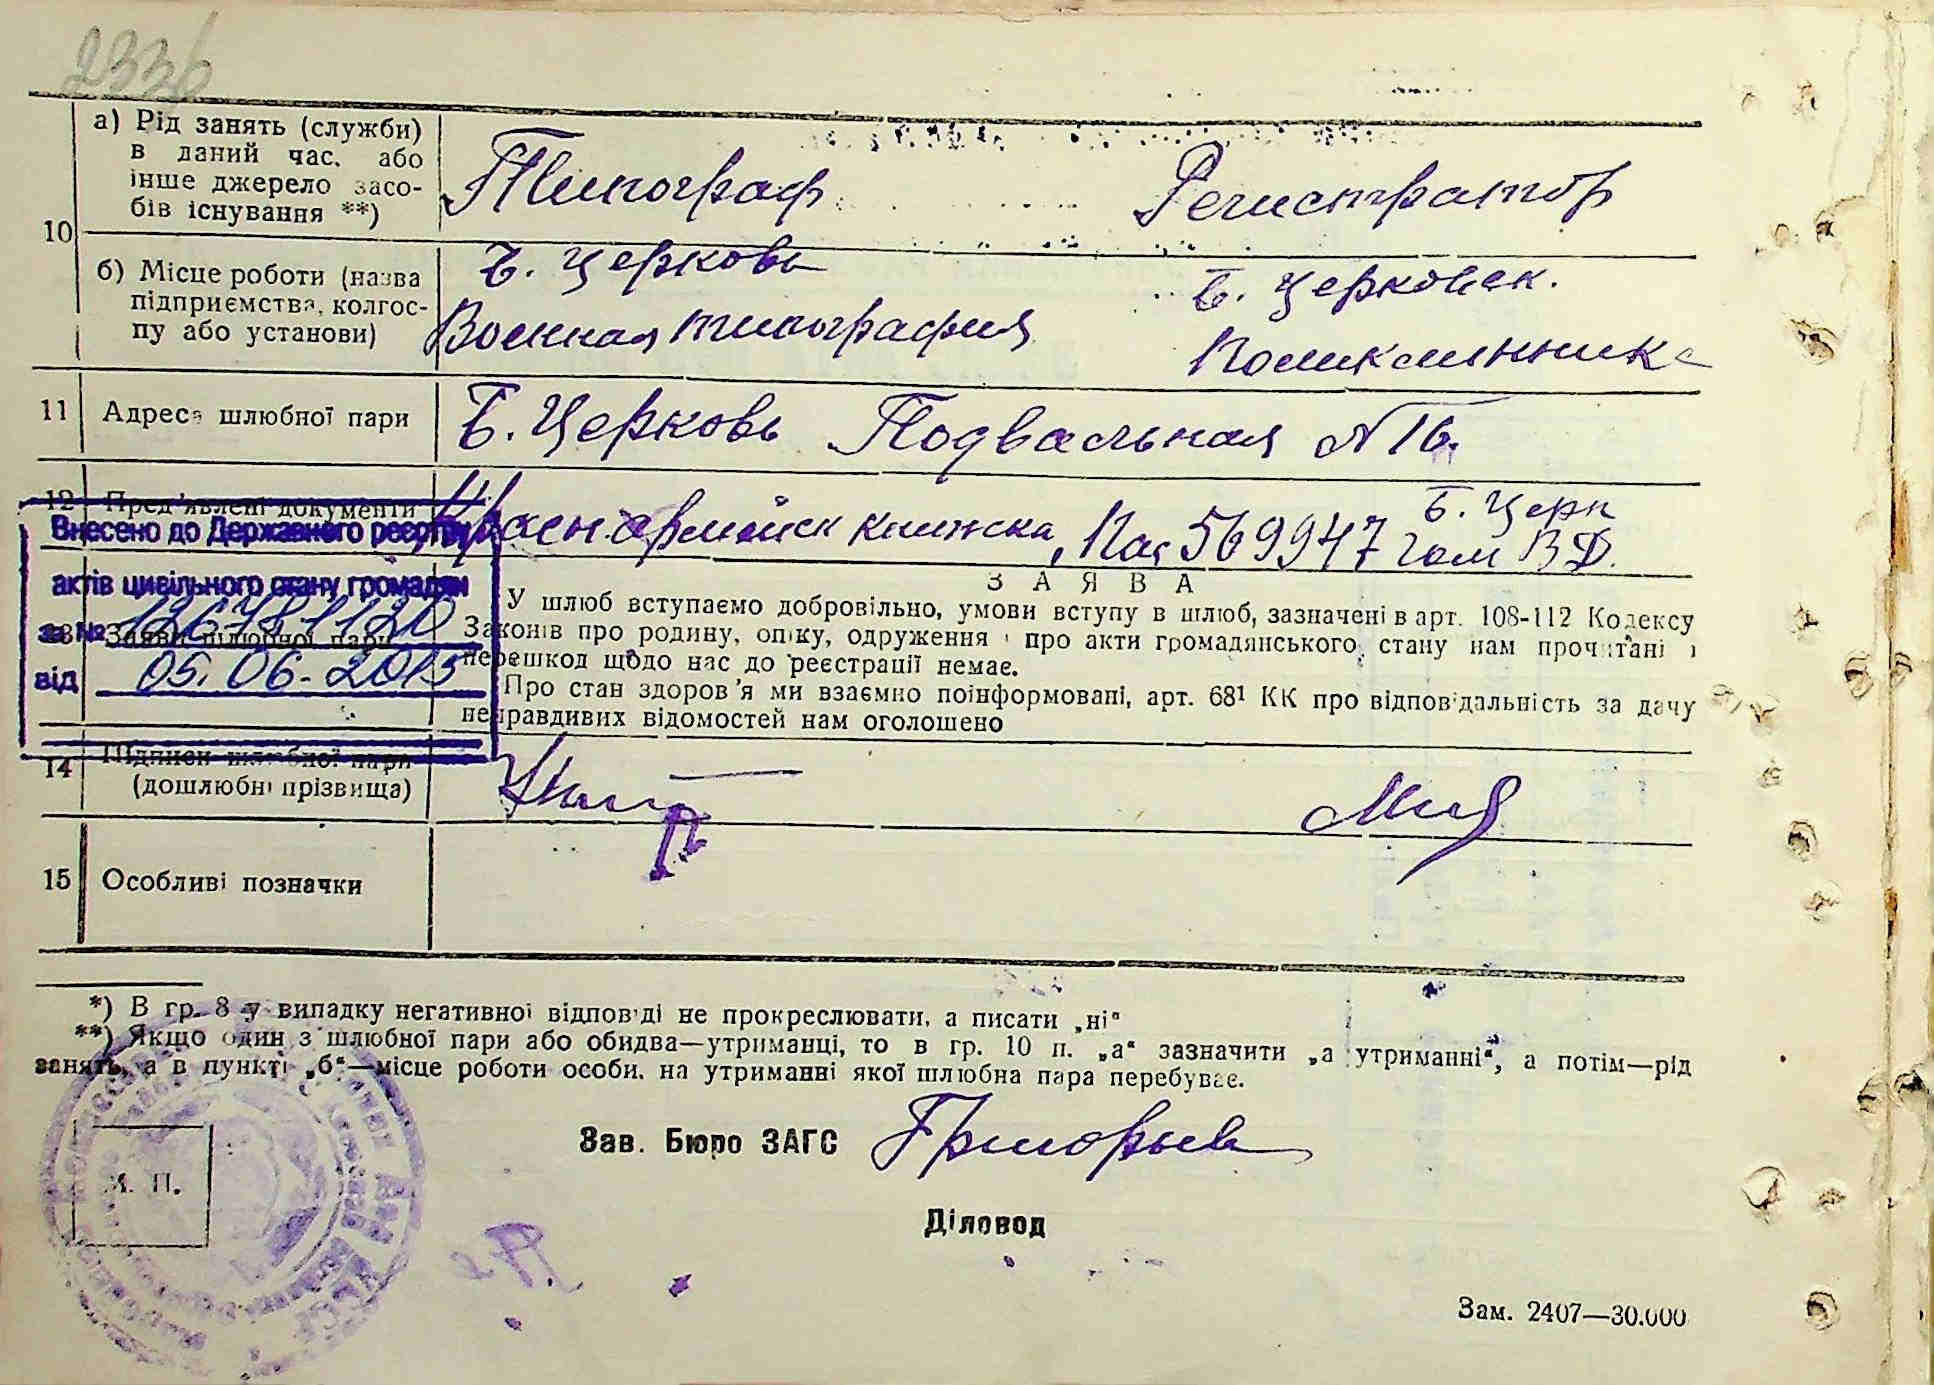 2336
10
а) Рід занять (служби)
в даний час, або
інше джерело засо-
бів існування **)
Типограф
Регистратор
б) Місце роботи (назва
підприємства, колгос-
пу або установи)
Б. Церковь
Военная типография
Б. Церковск.
Поликлинника
11
Адреса шлюбної пари
Б. Церковь Подвальная №16.
12
Пред'явлені документи
Красн. армейск книжка, Пас 569947
Б. Церк
ВД.
Внесено до Державного реєстру
актів цивільного стану громадян
за №
від 05. 06. 2015
Заяви шлюбної пари
ЗАЯВА
У шлюб вступаємо добровільно, умови вступу в шлюб, зазначені в арт. 108-112 Кодексу
Законів про родину, опіку, одруження і про акти громадянського стану нам прочитані і
перешкод щодо нас до реєстрації немає.
Про стан здоров'я ми взаємно поінформовані, арт. 68¹ КК про відповідальність за дачу
неправдивих відомостей нам оголошено
14
Підписи шлюбної пари
(дошлюбні прізвища)
15
Особливі позначки
*) В гр. 8 у випадку негативної відповіді не прокреслювати, а писати „ні“
**) Якщо один з шлюбної пари або обидва—утриманці, то в гр. 10 п. „а“ зазначити „а утриманні“, а потім—рід
занять, а в пункті „б“—місце роботи особи, на утриманні якої шлюбна пара перебуває.
М. П.
Зав. Бюро ЗАГС
Діловод
Зам. 2407—30.000